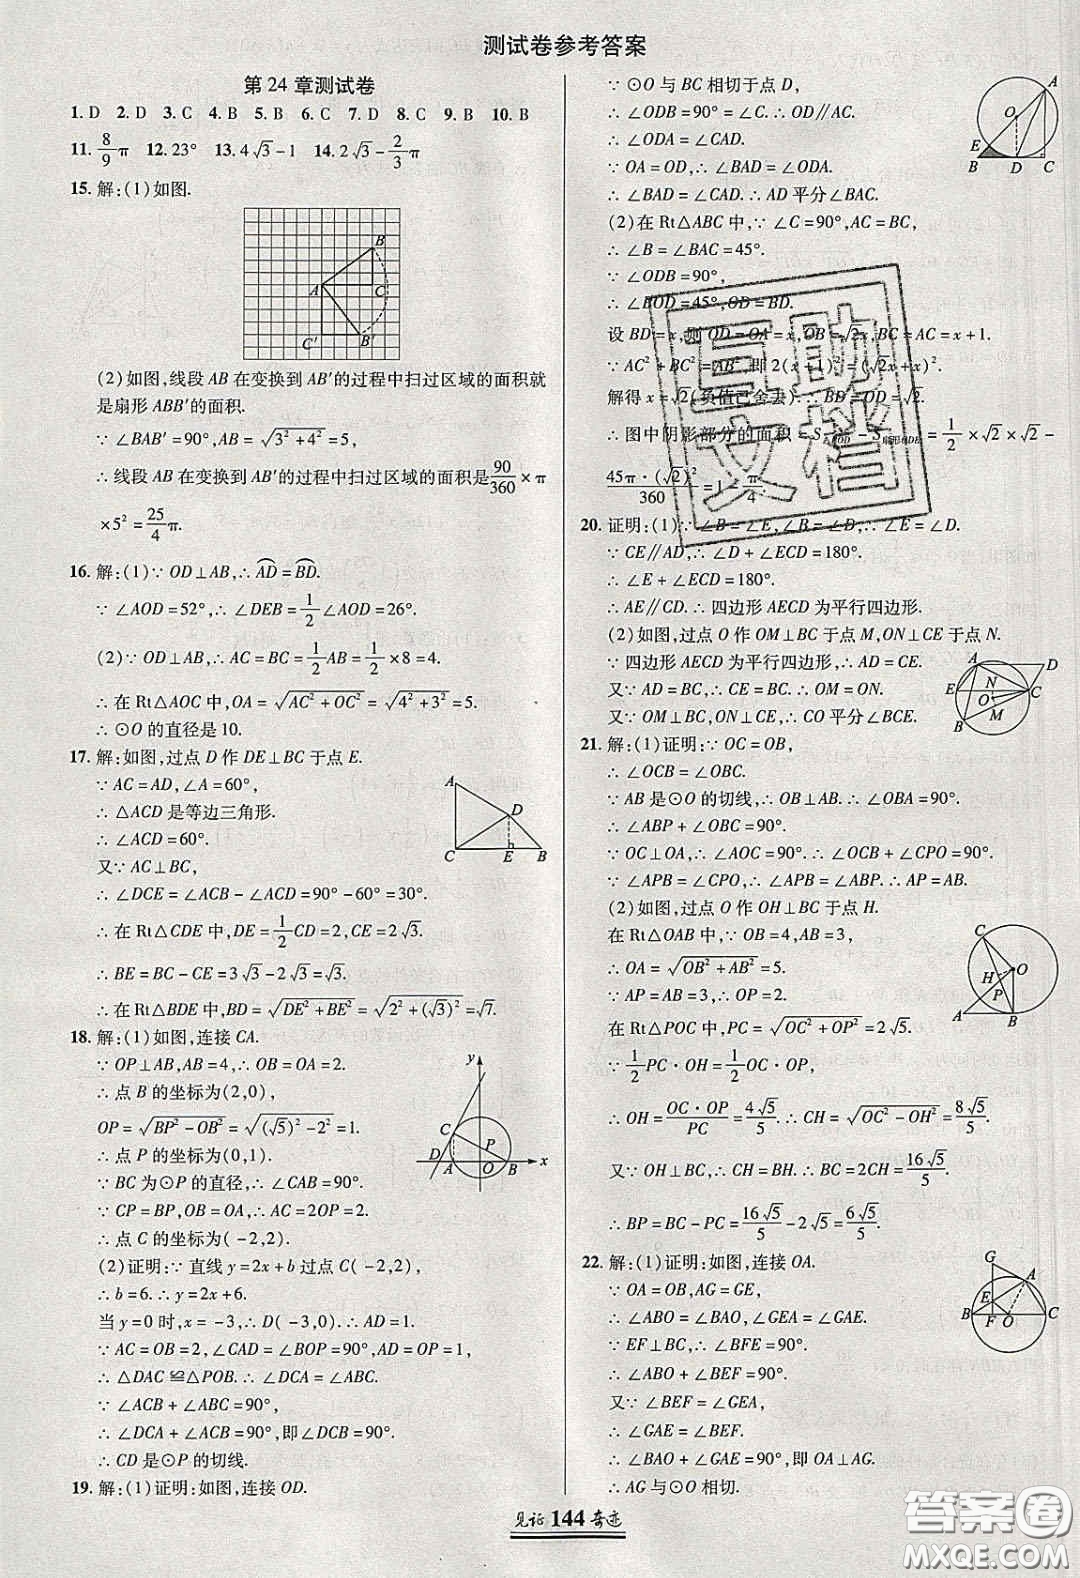 测试卷参考答案
第24章测试卷
1. D 2. D 3. C 4. B 5. B 6. C 7. D 8. C 9. B 10. B
11. 8/9π 12. 23° 13. 4√3-1 14. 2√3-2/3π
15. 解:(1)如图.
B
A
C
C′
B′
(2)如图,线段AB在变换到AB′的过程中扫过区域的面积就
是扇形ABB′的面积.
∵∠BAB′=90°,AB=√(3²+4²)=5,
∴线段AB在变换到AB′的过程中扫过区域的面积是90/360×π
×5²=25/4π.
16. 解:(1)∵OD⊥AB,∴⌒AD=⌒BD.
∵∠AOD=52°,∴∠DEB=1/2∠AOD=26°.
(2)∵OD⊥AB,∴AC=BC=1/2AB=1/2×8=4.
∴在Rt△AOC中,OA=√(AC²+OC²)=√(4²+3²)=5.
∴⊙O的直径是10.
17. 解:如图,过点D作DE⊥BC于点E.
∵AC=AD,∠A=60°,
∴△ACD是等边三角形.
∴∠ACD=60°.
又∵AC⊥BC,
∴∠DCE=∠ACB-∠ACD=90°-60°=30°.
∴在Rt△CDE中,DE=1/2CD=2,CE=2√3.
∴BE=BC-CE=3√3-2√3=√3.
∴在Rt△BDE中,BD=√(DE²+BE²)=√(2²+(√3)²)=√7.
A
D
C E B
18. 解:(1)如图,连接CA.
∵OP⊥AB,AB=4,∴OB=OA=2.
∴点B的坐标为(2,0),
OP=√(BP²-OB²)=√((√5)²-2²)=1.
∴点P的坐标为(0,1).
∵BC为⊙P的直径,∴∠CAB=90°.
∵CP=BP,OB=OA,∴AC=2OP=2.
∴点C的坐标为(-2,2).
(2)证明:∵直线y=2x+b过点C(-2,2),
∴b=6.∴y=2x+6.
当y=0时,x=-3,∴D(-3,0).∴AD=1.
∵AC=OB=2,∠CAD=∠BOP=90°,AD=OP=1,
∴△DAC≌△POB.∴∠DCA=∠ABC.
∵∠ACB+∠ABC=90°,
∴∠DCA+∠ACB=90°,即∠DCB=90°.
∴CD是⊙P的切线.
y
C
P
D A O B x
19. 解:(1)证明:如图,连接OD.
∵⊙O与BC相切于点D,
∴∠ODB=90°=∠C.∴OD∥AC.
∴∠ODA=∠CAD.
∵OA=OD,∴∠BAD=∠ODA.
∴∠BAD=∠CAD.∴AD平分∠BAC.
(2)在Rt△ABC中,∵∠C=90°,AC=BC,
∴∠B=∠BAC=45°.
∵∠ODB=90°,
∴∠BOD=45°,OD=BD.
设BD=x,则OD=OA=x,OB=√2x,BC=AC=x+1.
∵AC²+BC²=AB²,即2(x+1)²=(√2x+x)².
解得x=√2(负值已舍去).∴BD=OD=√2.
∴图中阴影部分的面积=S△BOD-S扇形ODE=1/2×√2×√2-
45π·(√2)²/360=1-π/4.
A
O
E
B D C
20. 证明:(1)∵∠B=∠E,∠B=∠D,∴∠E=∠D.
∵CE∥AD,∴∠D+∠ECD=180°.
∴∠E+∠ECD=180°.
∴AE∥CD.∴四边形AECD为平行四边形.
(2)如图,过点O作OM⊥BC于点M,ON⊥CE于点N.
∵四边形AECD为平行四边形,∴AD=CE.
又∵AD=BC,∴CE=CB.∴OM=ON.
又∵OM⊥BC,ON⊥CE,∴CO平分∠BCE.
A D
E N C
O
M
B
21. 解:(1)证明:∵OC=OB,
∴∠OCB=∠OBC.
∵AB是⊙O的切线,∴OB⊥AB.∴∠OBA=90°.
∴∠ABP+∠OBC=90°.
∵OC⊥OA,∴∠AOC=90°.∴∠OCB+∠CPO=90°.
∵∠APB=∠CPO,∴∠APB=∠ABP.∴AP=AB.
(2)如图,过点O作OH⊥BC于点H.
在Rt△OAB中,∵OB=4,AB=3,
∴OA=√(OB²+AB²)=5.
∵AP=AB=3,∴OP=2.
在Rt△POC中,PC=√(OC²+OP²)=2√5.
∵1/2PC·OH=1/2OC·OP,
∴OH=OC·OP/PC=4√5/5.∴CH=√(OC²-OH²)=8√5/5.
又∵OH⊥BC,∴CH=BH.∴BC=2CH=16√5/5.
∴BP=BC-PC=16√5/5-2√5=6√5/5.
C
H O
P
A B
22. 解:(1)证明:如图,连接OA.
∵OA=OB,AG=GE,
∴∠ABO=∠BAO,∠GEA=∠GAE.
∵EF⊥BC,∴∠BFE=90°.
∴∠ABO+∠BEF=90°.
又∵∠BEF=∠GEA,
∴∠GAE=∠BEF.
∴∠BAO+∠GAE=90°,即OA⊥AG.
∴AG与⊙O相切.
G
A
E
B F O C
见证 144 奇迹
互助
文档
答案圈
MXQE.COM